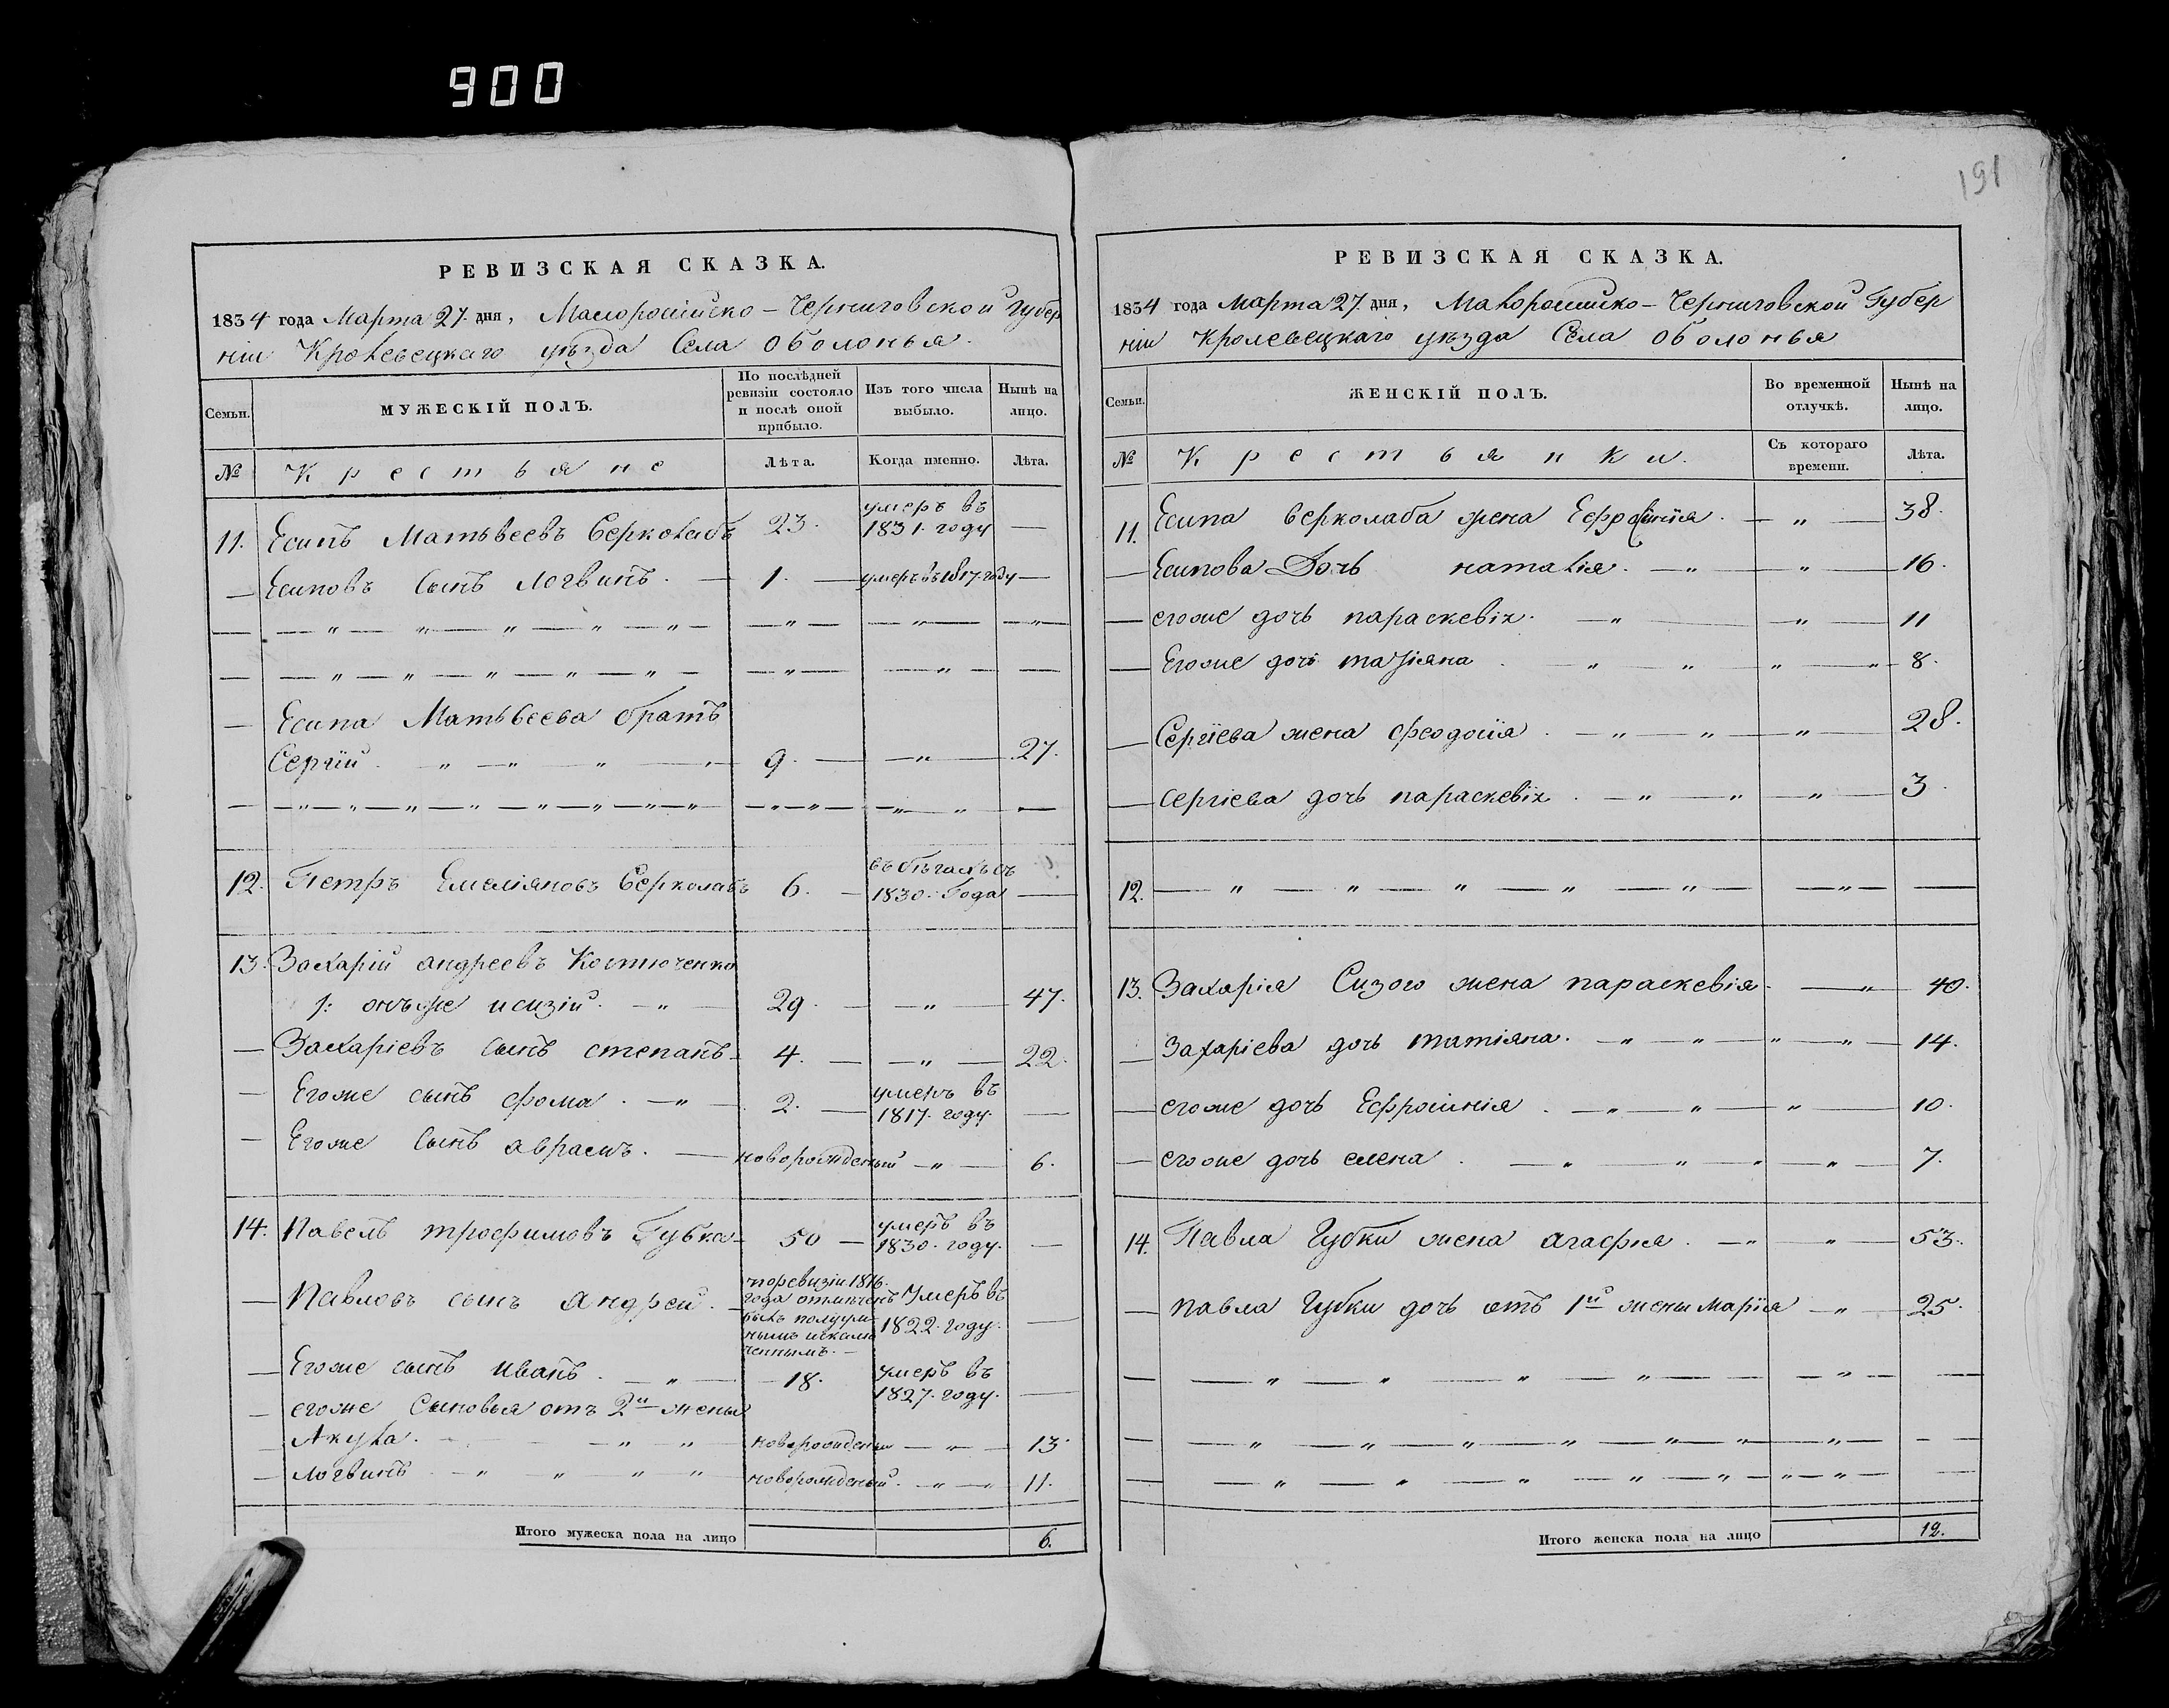 900
191
РЕВИЗСКАЯ СКАЗКА.
1834 года Марта 27. дня, Малоросійско-Черниговской Губер
ніи Кролевецкаго уѣзда Села Оболонья.
Семьи.
МУЖЕСКІЙ ПОЛЪ.
По послѣдней ревизіи состояло и послѣ оной прибыло.
Изъ того числа выбыло.
Нынѣ на лицо.
№
Крестьяне
Лѣта.
Когда именно.
Лѣта.
11. Есипъ Матвѣевъ Верколабъ 23. умеръ въ 1831. году —
— Есиповъ сынъ Логвинъ. — 1. — умеръ въ 1817. году —
— Есипа Матвѣева братъ
Сергій. 9. — " — 27.
12. Петръ Емеліяновъ Верколабъ 6. — въ бѣгахъ съ 1830. Года —
13. Захарій андреевъ Костюченко
онъже 29. — " — 47.
— Захаріевъ сынъ степанъ. 4. — " — 22.
— Егоже сынъ фома. — " — 2. — умеръ въ 1817. году. —
— Егоже Сынъ аврамъ. — новорожденый — " — 6.
14. Павелъ трофимовъ Губка — 50 — умеръ въ 1830. году. —
— Павловъ сынъ Андрей. по ревизіи 1816. года отмѣченъ Умеръ въ 1822. году. —
— Егоже сынъ иванъ. — " — 18. умеръ въ 1827. году. —
— егоже Сыновья отъ 2й жены
— Акула. — " — новорожденый — " — 13.
— Логвинъ — " новорожденый. — " — 11.
Итого мужеска пола на лицо 6.
РЕВИЗСКАЯ СКАЗКА.
1834 года Марта 27. дня, Малоросійско-Черниговской Губер
ніи Кролевецкаго уѣзда Села Оболонья
Семьи.
ЖЕНСКІЙ ПОЛЪ.
Во временной отлучкѣ.
Нынѣ на лицо.
№
Крестьянки.
Съ котораго времени.
Лѣта.
11. Есипа верколаба жена Ефросинія. — " — 38.
— Есипова Дочь наталія. — " — " — 16.
— егоже дочь параскевія. — " — " — 11
— Егоже дочь татіяна. " " " " — 8.
— Сергіева жена феодосія. — " — " — " — 28.
— сергіева дочь параскевія. — " — " — " — 3
12. — " — " — " — " — " — — " — —
13. Захарія Сизого жена параскевія. — " — 40.
— Захаріева дочь татіяна. — " — " — " — " — 14.
— егоже дочь Ефросинія. — " — " — " — 10.
— егоже дочь елена. — " — " — " — " — 7.
14. Павла Губки жена агафія. — " — " — 53.
— павла Губки дочь отъ 1й жены Марія — " — 25.
Итого женска пола на лицо 12.